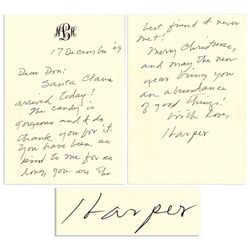 17 December '09
Dear Don:
Santa Claus
arrived today!
The candy is
gorgeous and I do
thank you for it.
You have been so
kind to me for so
long, you are the
best friend I never
met!
Merry Christmas,
and may the new
year bring you
an abundance
of good things!
With love,
Harper
Harper